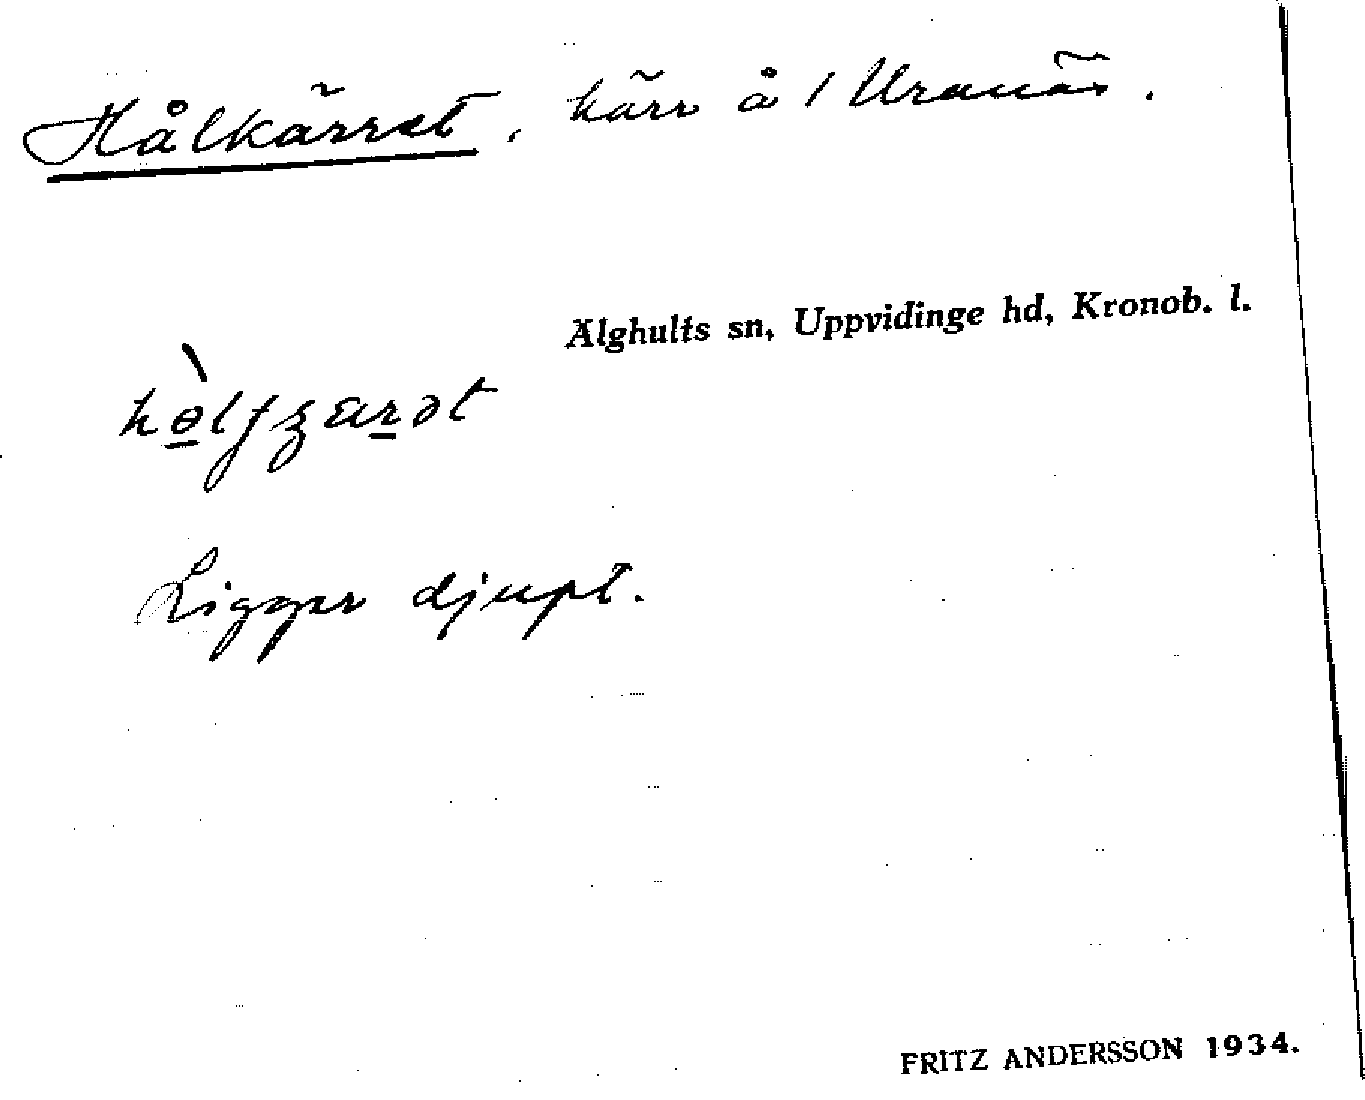 Hålkärret, kärr å 1 Uranäs.
Älghults sn, Uppvidinge hd, Kronob. l.
Ligger djupt.
FRITZ ANDERSSON 1934.